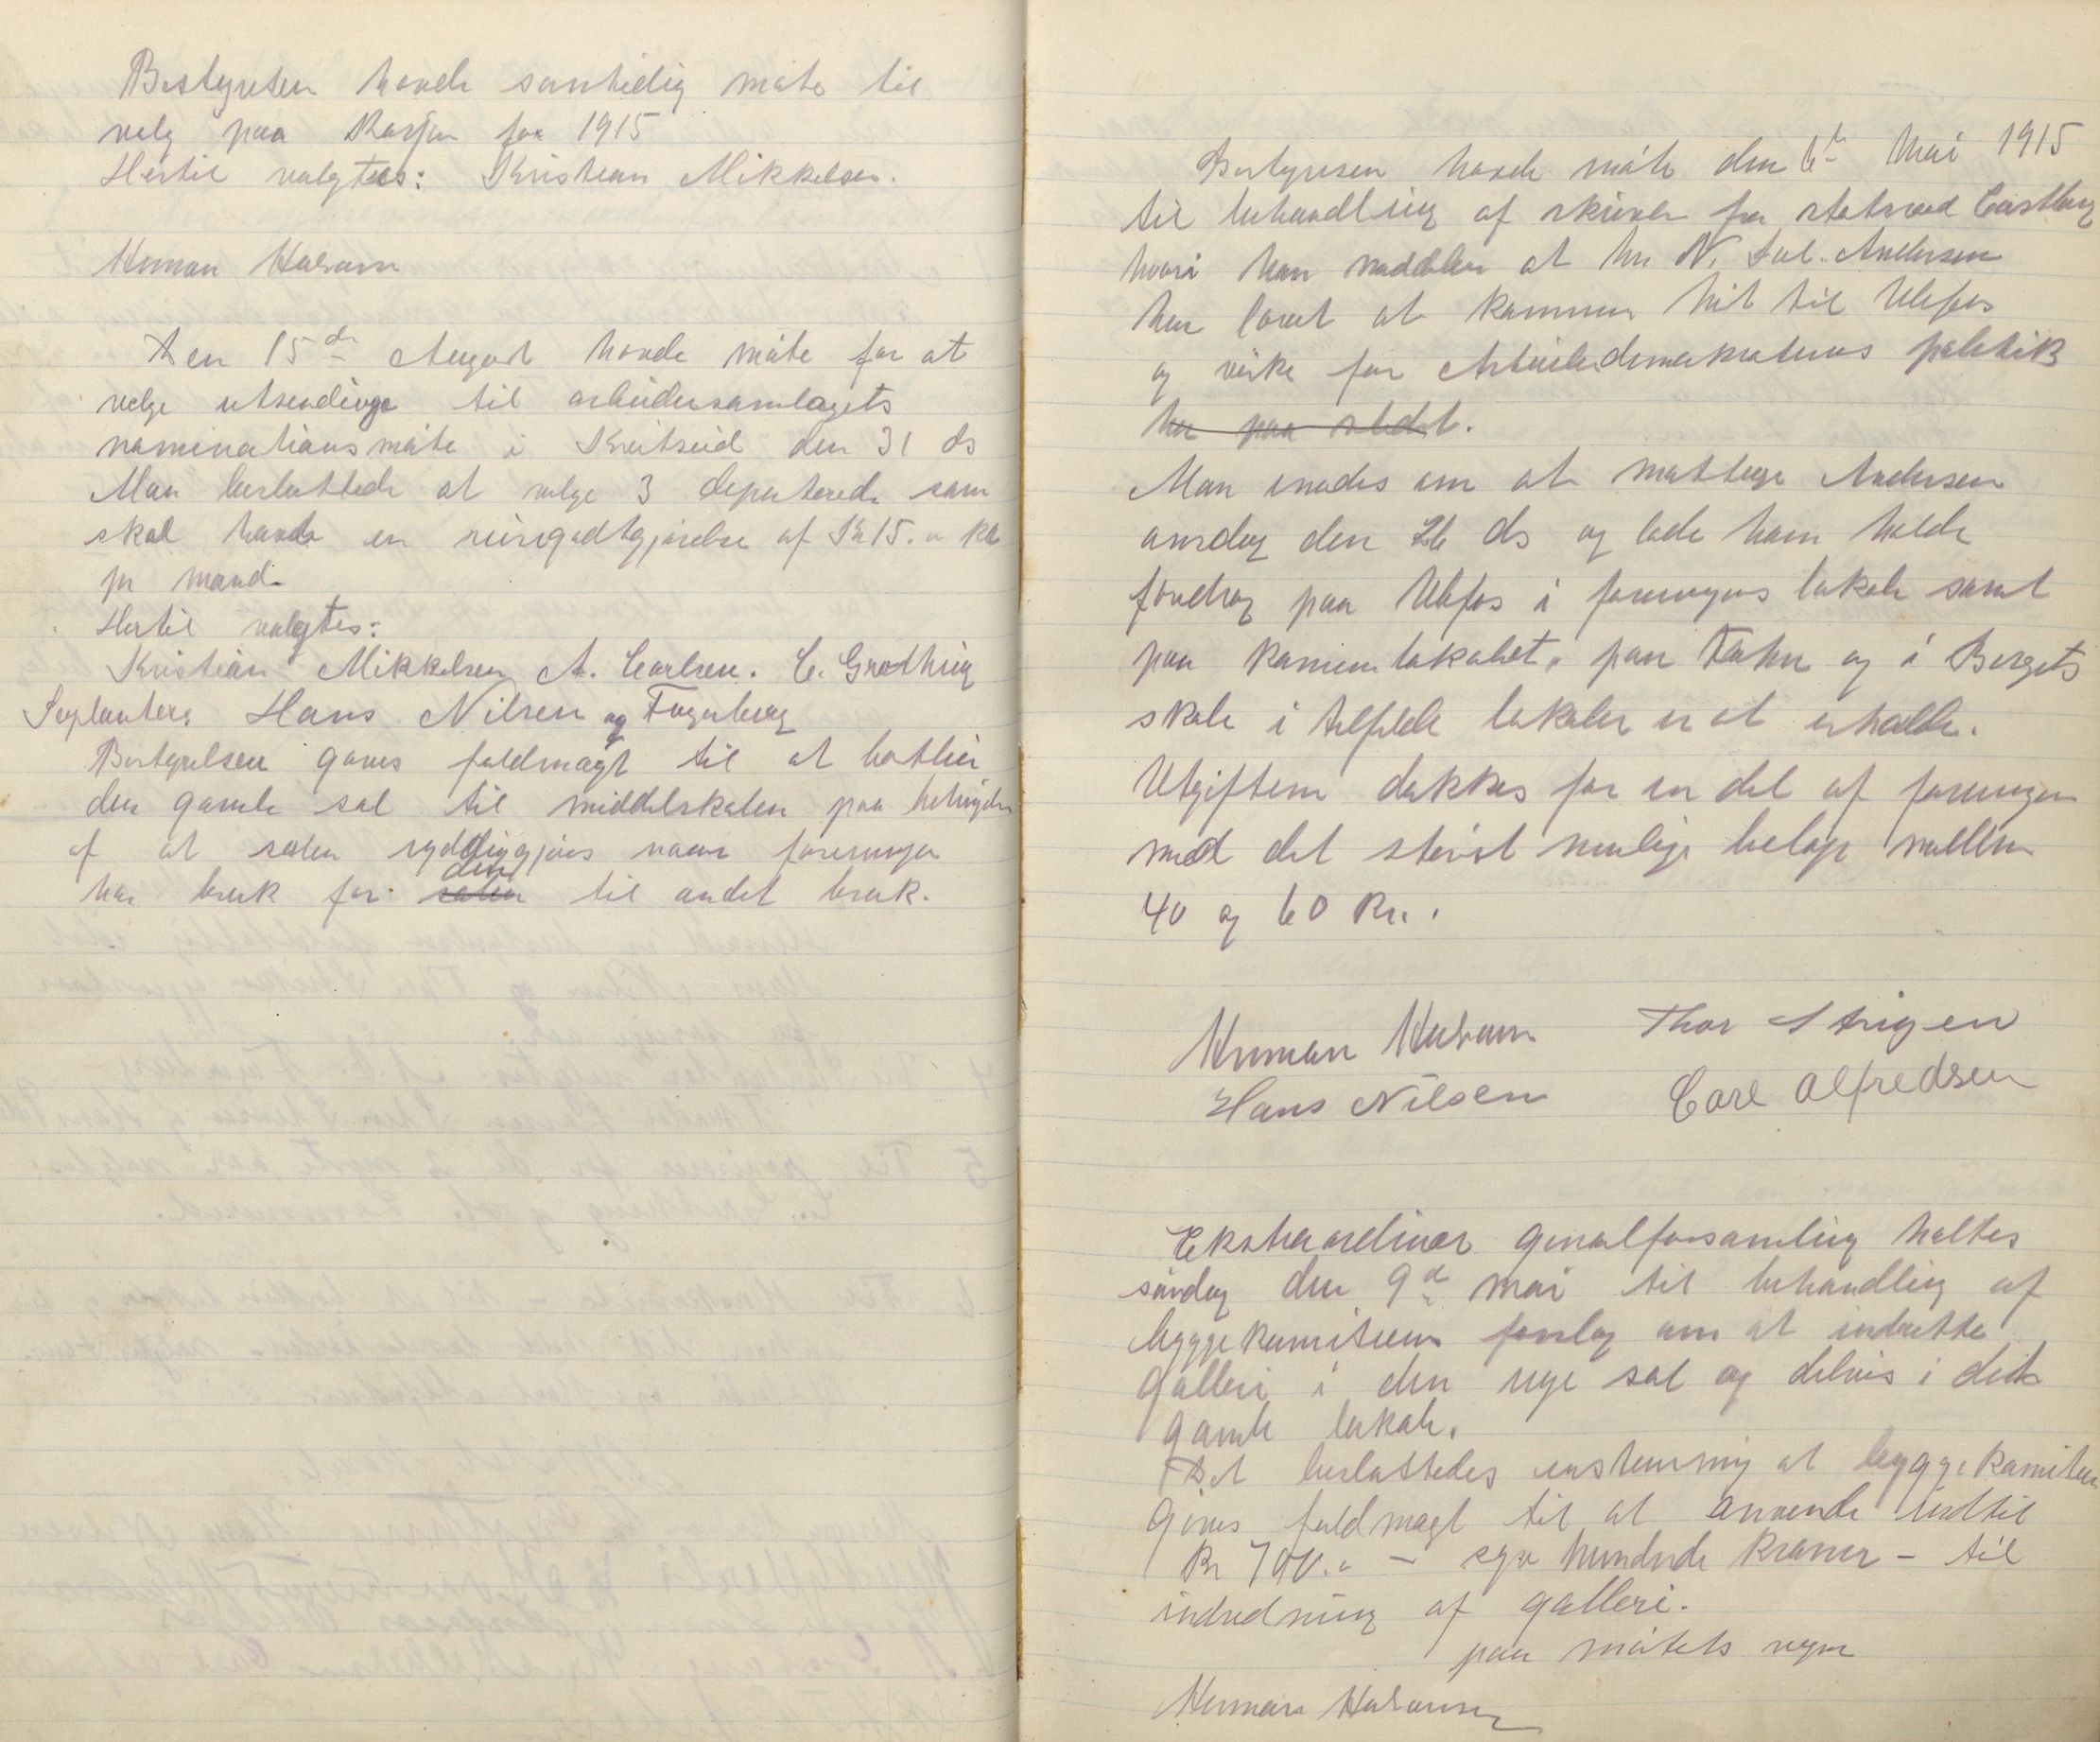 Bestyrelsen havde samtidig møte til
valg paa Kasjer for 1915
Hertil valgtes: Kristian Mikkelsen.
Herman Halvorsen
Den 15de August havde møte for at
velge utsendinge til arbeidersamlagets
nominationsmøte i Kviteseid den 31 ds
Man besluttede at velge 3 deputerede som
skal havde en reisegodtgjørelse af Kr 15.
pr mand.
Hertil valgtes:
Kristian Mikkelsen A. Carlsen. C. Grøthing
Suplanters Hans Nilsen og Fagerberg
Bestyrelsen gaves fuldmagt til at bortleie
den gamle sal til middelskolen paa betingelse
af at salen ryddiggjøres naar foreningen
har bruk for salen den til andet bruk.
Bestyrelsen havde møte den 6te Mai 1915
til behandling af skrivelse fra statsraad Castberg
hvori han meddeler at hr N. Jul. Andersen
har lovet at komme hit til Ulefos
og virke for Arbeiderdemokraternes politik
her paa stedet.
Man enedes om at mottage Andersen
onsdag den 26 ds og lade ham holde
foredrag paa Ulefos i foreningens lokale samt
paa lokalet, paa Fæhn og i Bergets
skole i tilfelde lokaler er at erholde.
Utgifterne dækkes for en del af foreningen
med det størst mulige beløp mellem
40 og 60 Kr.
Herman Halvorsen Thor Stigen
Hans Nilsen Carl Alfredsen
Ekstraordinær generalforsamling holtes
søndag den 9de mai til behandling af
byggekomiteens forslag om at indrette
galleri i den nye sal og delvis i det
gamle lokale.
Det besluttedes enstemmig at byggekomiteen
gives fuldmagt til at anvende indtil
Kr 700.- – syv hundrede kroner – til
indredning af galleri.
paa møtets vegne
Herman Halvorsen